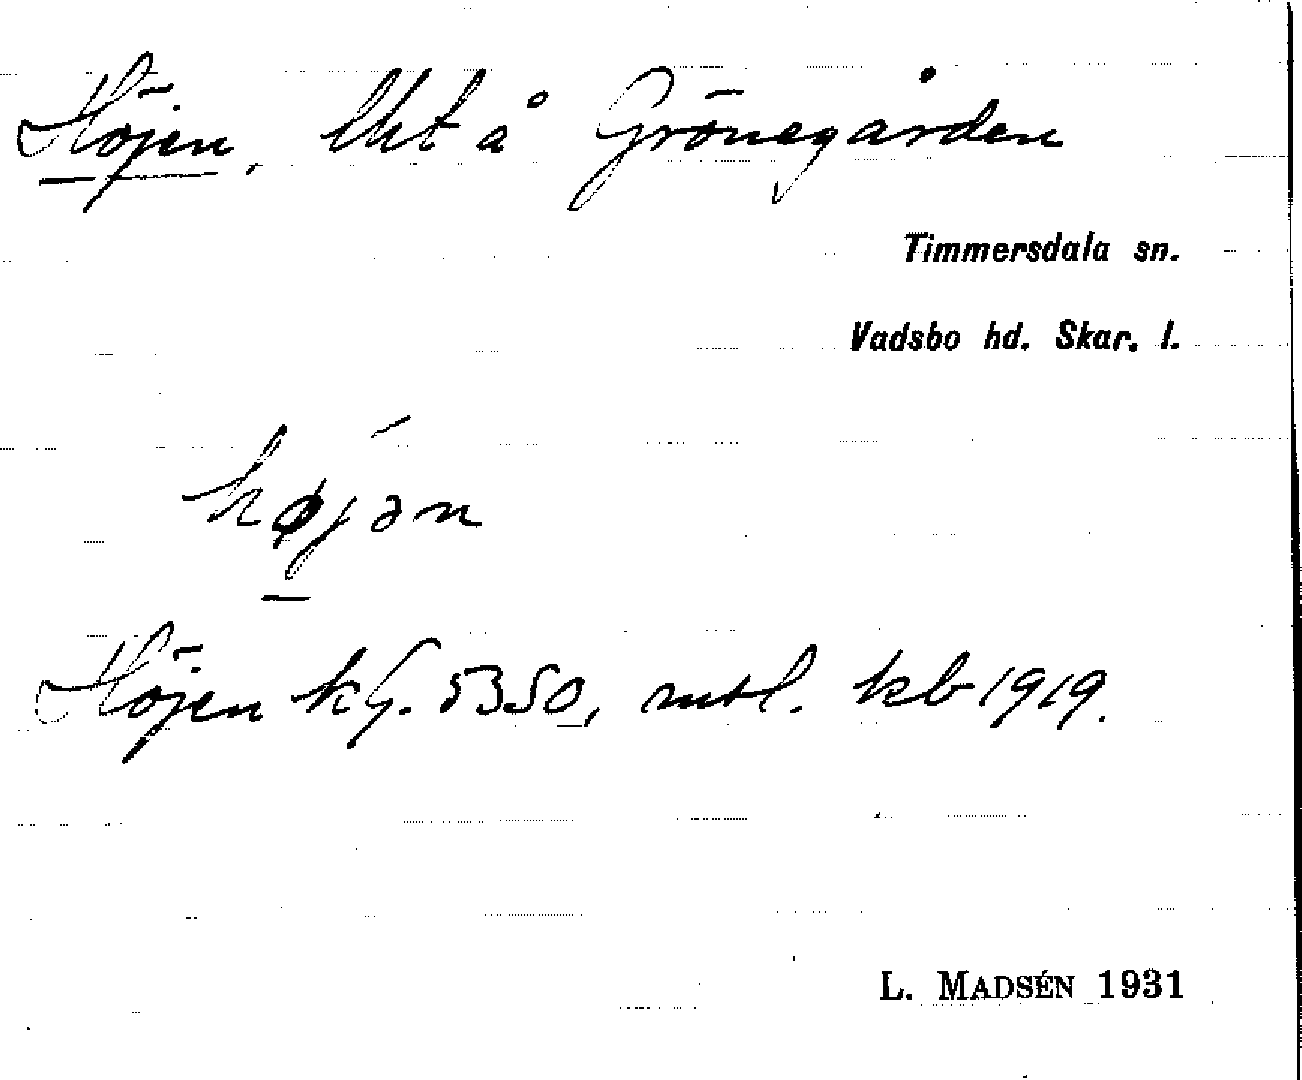 Höjen, lht å Grönegården
Timmersdala sn.
Vadsbo hd. Skar. l.
højən
Höjen kG. 5350, mtl. kb 1919.
L. MADSÉN 1931